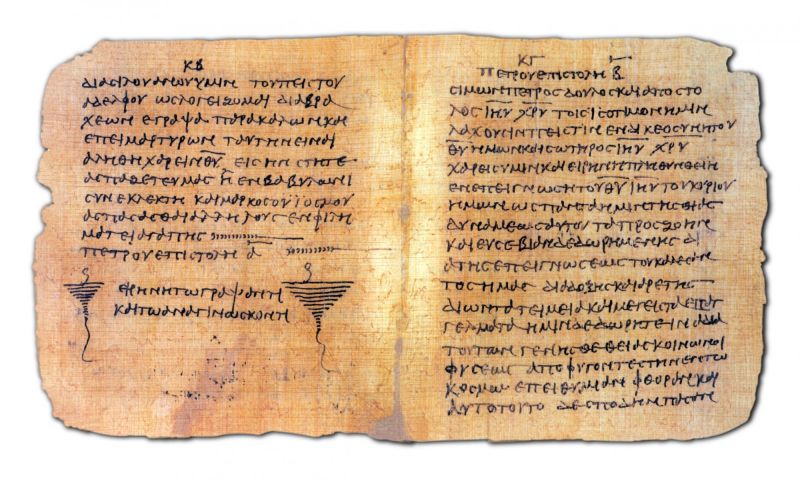 ΚΒ
ΔΙΑϹΙΛΟΥΑΝΟΥΥΜΙΝ ΤΟΥΠΕΙϹΤΟΥ
ΑΔΕΛΦΟΥ ΩϹΛΟΓΕΙΖΟΜΑΙ ΔΙΑΒΡΑ
ΧΕΩΝ ΕΓΡΑΨΑ ΠΑΡΑΚΑΛΩΝΚΑΙ
ΕΠΕΙΜΑΡΤΥΡΩΝ ΤΑΥΤΗΝΕΙΝΑΙ
ΑΛΗΘΗΧΑΡΕΙΝΘ̅Υ̅ ΕΙϹΗΝϹΤΗΤΕ
ΑϹΠΑΖΕΤΕΥΜΑϹ Η ΕΝΒΑΒΥΛΩΝΙ
ϹΥΝΕΚΛΕΚΤΗ ΚΑΙΜΑΡΚΟϹΟΥΙΟϹΜΟΥ
ΑϹΠΑϹΑϹΘΑΙΑΛΛΗΛΟΥϹ ΕΝΦΙΛΗ
ΜΑΤΕΙΑΓΑΠΗϹ
ΠΕΤΡΟΥΕΠΙϹΤΟΛΗ Α̅
ΕΙΡΗΝΗΤΩΓΡΑΨΑΝΤΙ
ΚΑΙΤΩΑΝΑΓΙΝΩϹΚΟΝΤΙ
ΚΓ
ΠΕΤΡΟΥΕΠΙϹΤΟΛΗ Β̅
ϹΙΜΩΝΠΕΤΡΟϹΔΟΥΛΟϹΚΑΙΑΠΟϹΤΟ
ΛΟϹ Ι̅Η̅Υ̅ Χ̅Ρ̅Υ̅ ΤΟΙϹΙϹΟΤΙΜΟΝΗΜΙΝ
ΛΑΧΟΥϹΙΝΠΕΙϹΤΙΝ ΕΝΔΙΚΕΟϹΥΝΗΤΟΥ
Θ̅Υ̅ ΗΜΩΝΚΑΙϹΩΤΗΡΟϹ Ι̅Η̅Υ̅ Χ̅Ρ̅Υ̅
ΧΑΡΕΙϹΥΜΙΝΚΑΙΕΙΡΗΝΗΠΛΗΘΥΝΘΕΙΗ
ΕΝΕΠΕΙΓΝΩϹΗΤΟΥΘ̅Υ̅ Ι̅Η̅Υ̅ ΤΟΥΚΥΡΙΟΥ
ΗΜΩΝ ΩϹΠΑΝΤΑΗΜΙΝΤΗϹΘΙΑϹ
ΔΥΝΑΜΕΩϹΑΥΤΟΥ ΤΑΠΡΟϹΖΩΗΝ
ΚΑΙΕΥϹΕΒΙΑΝΔΕΔΩΡΗΜΕΝΗϹ ΔΙ
ΑΤΗϹΕΠΕΙΓΝΩϹΕΩϹ ΤΟΥΚΑΛΕϹΑΝ
ΤΟϹΗΜΑϹ ΔΙΑΔΟΞΗϹΚΑΙΑΡΕΤΗϹ
ΔΙΩΝΤΑΤΕΙΜΕΙΑΚΑΙΜΕΓΕΙϹΤΑΕΠΑΓ
ΓΕΛΜΑΤΑΗΜΙΝΔΕΔΩΡΗΤΕΙΝΑΔΙΑ
ΤΟΥΤΩΝ ΓΕΝΗϹΘΕ ΘΕΙΑϹΚΟΙΝΩΝΟΙ
ΦΥϹΕΩϹ ΑΠΟΦΥΓΟΝΤΕϹΤΗΝΕΝΤΩ
ΚΟϹΜΩ ΕΠΕΙΘΥΜΙΑΝ ΦΘΟΡΑΝ ΚΑΙ
ΑΥΤΟΤΟΥΤΟ ΔΕϹΠΟΔΗΝΠΑϹΑΝ